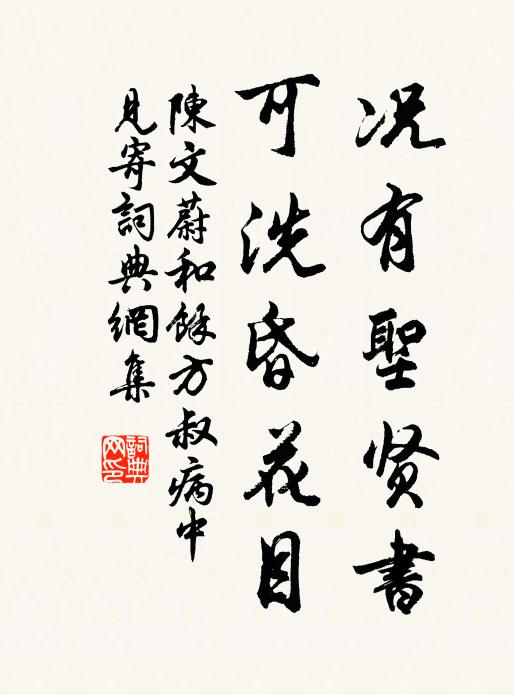 况有聖贤書
可洗昏花目
陳文蔚和餘方叔病中
見寄詞典網集
詞典
网印